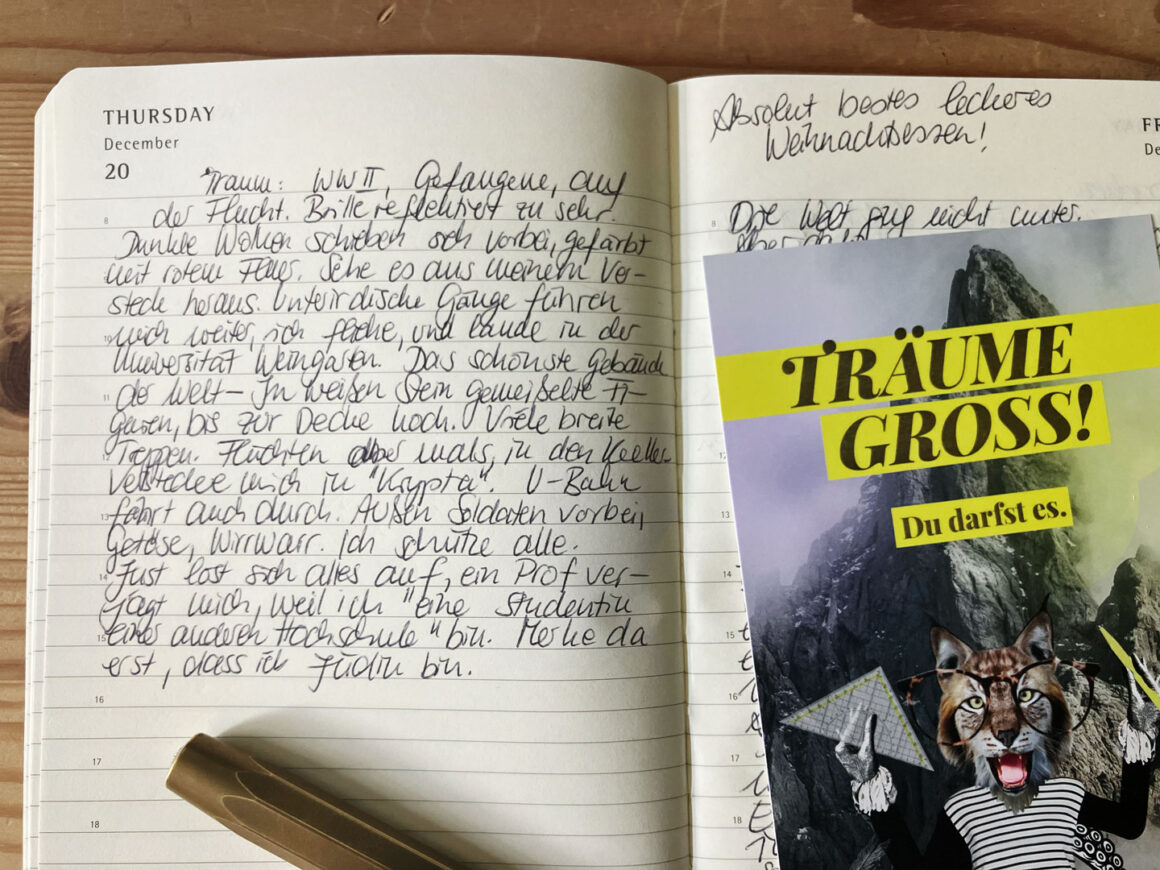 THURSDAY
December
20
Traum: WWII, Gefangene, auf
der Flucht. Brille reflektiert zu sehr.
Dunkle Wolken schieben sich vorbei, gefärbt
mit rotem Feuer. Sehe es aus meinem Ver-
steck heraus. Unterirdische Gänge führen
mich weiter, ich fliehe, und lande in der
Universität Weingarten. Das schönste Gebäude
der Welt – In weißen Stein gemeißelte Fi-
guren, bis zur Decke hoch. Viele breite
Treppen. Flüchten abermals, in den Keller.
Verstecke mich in "Krypta". U-Bahn
fährt auch durch. Außen Soldaten vorbei,
Getöse, Wirrwarr. Ich schütze alle.
Just löst sich alles auf, ein Prof ver-
jagt mich, weil ich "eine Studentin
einer anderen Hochschule" bin. Merke da
erst, dass ich Jüdin bin.
8
10
11
13
14
15
16
17
18
Absolut bestes leckeres
Weihnachtsessen!
FR
De
8
Die Welt ging nicht unter.
aber
12
13
14
15
16
17
18
TRÄUME
GROSS!
Du darfst es.